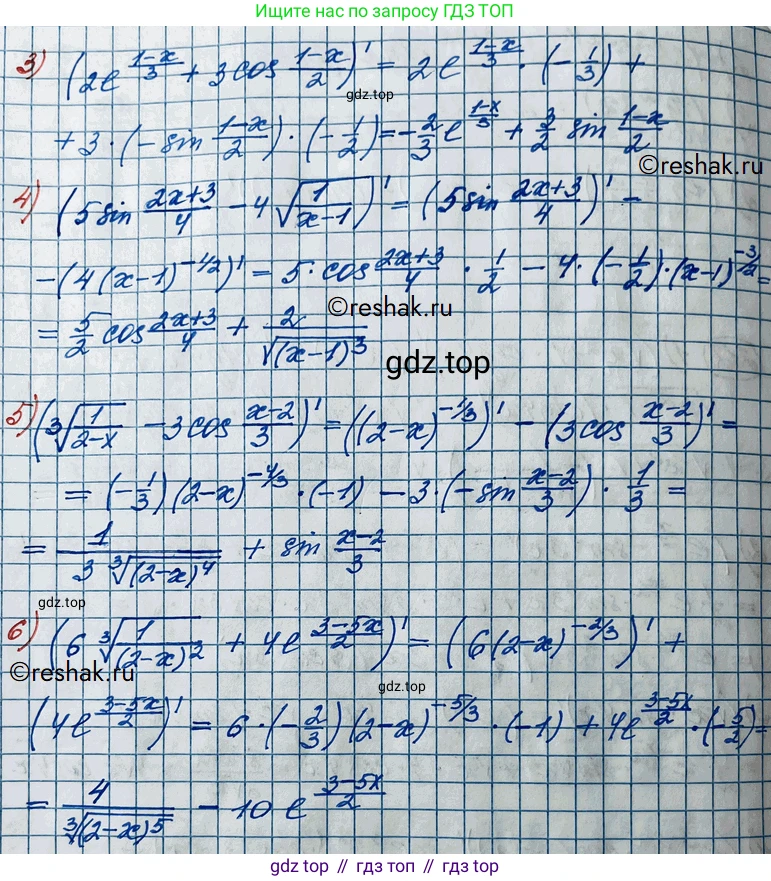 Ищите нас по запросу ГДЗ ТОП
3) (2e^{(1-x)/3} + 3 cos (1-x)/2)' = 2e^{(1-x)/3} · (-1/3) +
gdz.top
+ 3 · (-sin (1-x)/2) · (-1/2) = -2/3 e^{(1-x)/3} + 3/2 sin (1-x)/2
©reshak.ru
4) (5 sin (2x+3)/4 - 4 √(1/(x-1)))' = (5 sin (2x+3)/4)' -
- (4 (x-1)^{-1/2})' = 5 · cos (2x+3)/4 · 1/2 - 4 · (-1/2) · (x-1)^{-3/2} =
©reshak.ru
= 5/2 cos (2x+3)/4 + 2/√((x-1)^3)
gdz.top
5) (∛(1/(2-x)) - 3 cos (x-2)/3)' = ((2-x)^{-1/3})' - (3 cos (x-2)/3)' =
= (-1/3) (2-x)^{-4/3} · (-1) - 3 · (-sin (x-2)/3) · 1/3 =
= 1/(3 ∛((2-x)^4)) + sin (x-2)/3
gdz.top
6) (6 ∛(1/(2-x)^2) + 4e^{(3-5x)/2})' = (6(2-x)^{-2/3})' +
©reshak.ru
gdz.top
(4e^{(3-5x)/2})' = 6 · (-2/3) (2-x)^{-5/3} · (-1) + 4e^{(3-5x)/2} · (-5/2) =
= 4/∛((2-x)^5) - 10 e^{(3-5x)/2}
gdz.top // гдз топ // gdz.top